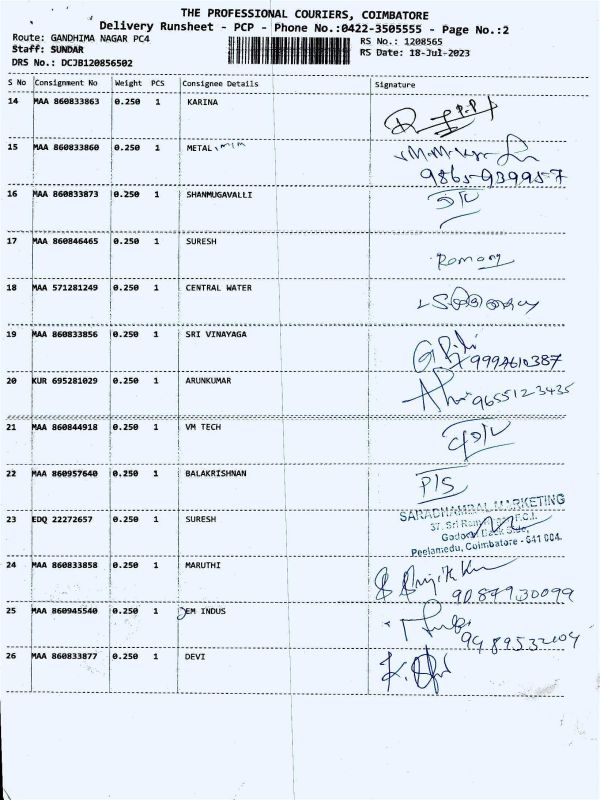 THE PROFESSIONAL COURIERS, COIMBATORE
Delivery Runsheet - PCP - Phone No.:0422-3505555 - Page No.:2
Route: GANDHIMA NAGAR PC4
RS No.: 1208565
Staff: SUNDAR
RS Date: 18-Jul-2023
DRS No.: DCJB120856502
S No Consignment No Weight PCS Consignee Details Signature
14 MAA 860833863 0.250 1 KARINA
15 MAA 860833860 0.250 1 METAL MIM
9865-939957
16 MAA 860833873 0.250 1 SHANMUGAVALLI
17 MAA 860846465 0.250 1 SURESH
Romany
18 MAA 571281249 0.250 1 CENTRAL WATER
19 MAA 860833856 0.250 1 SRI VINAYAGA
9994610387
20 KUR 695281029 0.250 1 ARUNKUMAR
9655123435
21 MAA 860844918 0.250 1 VM TECH
22 MAA 860957640 0.250 1 BALAKRISHNAN
P/S
23 EDQ 22272657 0.250 1 SURESH
SARADHAMBAL MARKETING
37, Sri
Side,
Peelamedu, Coimbatore - 641 004.
24 MAA 860833858 0.250 1 MARUTHI
9087930099
25 MAA 860945540 0.250 1 EM INDUS
9489532104
26 MAA 860833877 0.250 1 DEVI